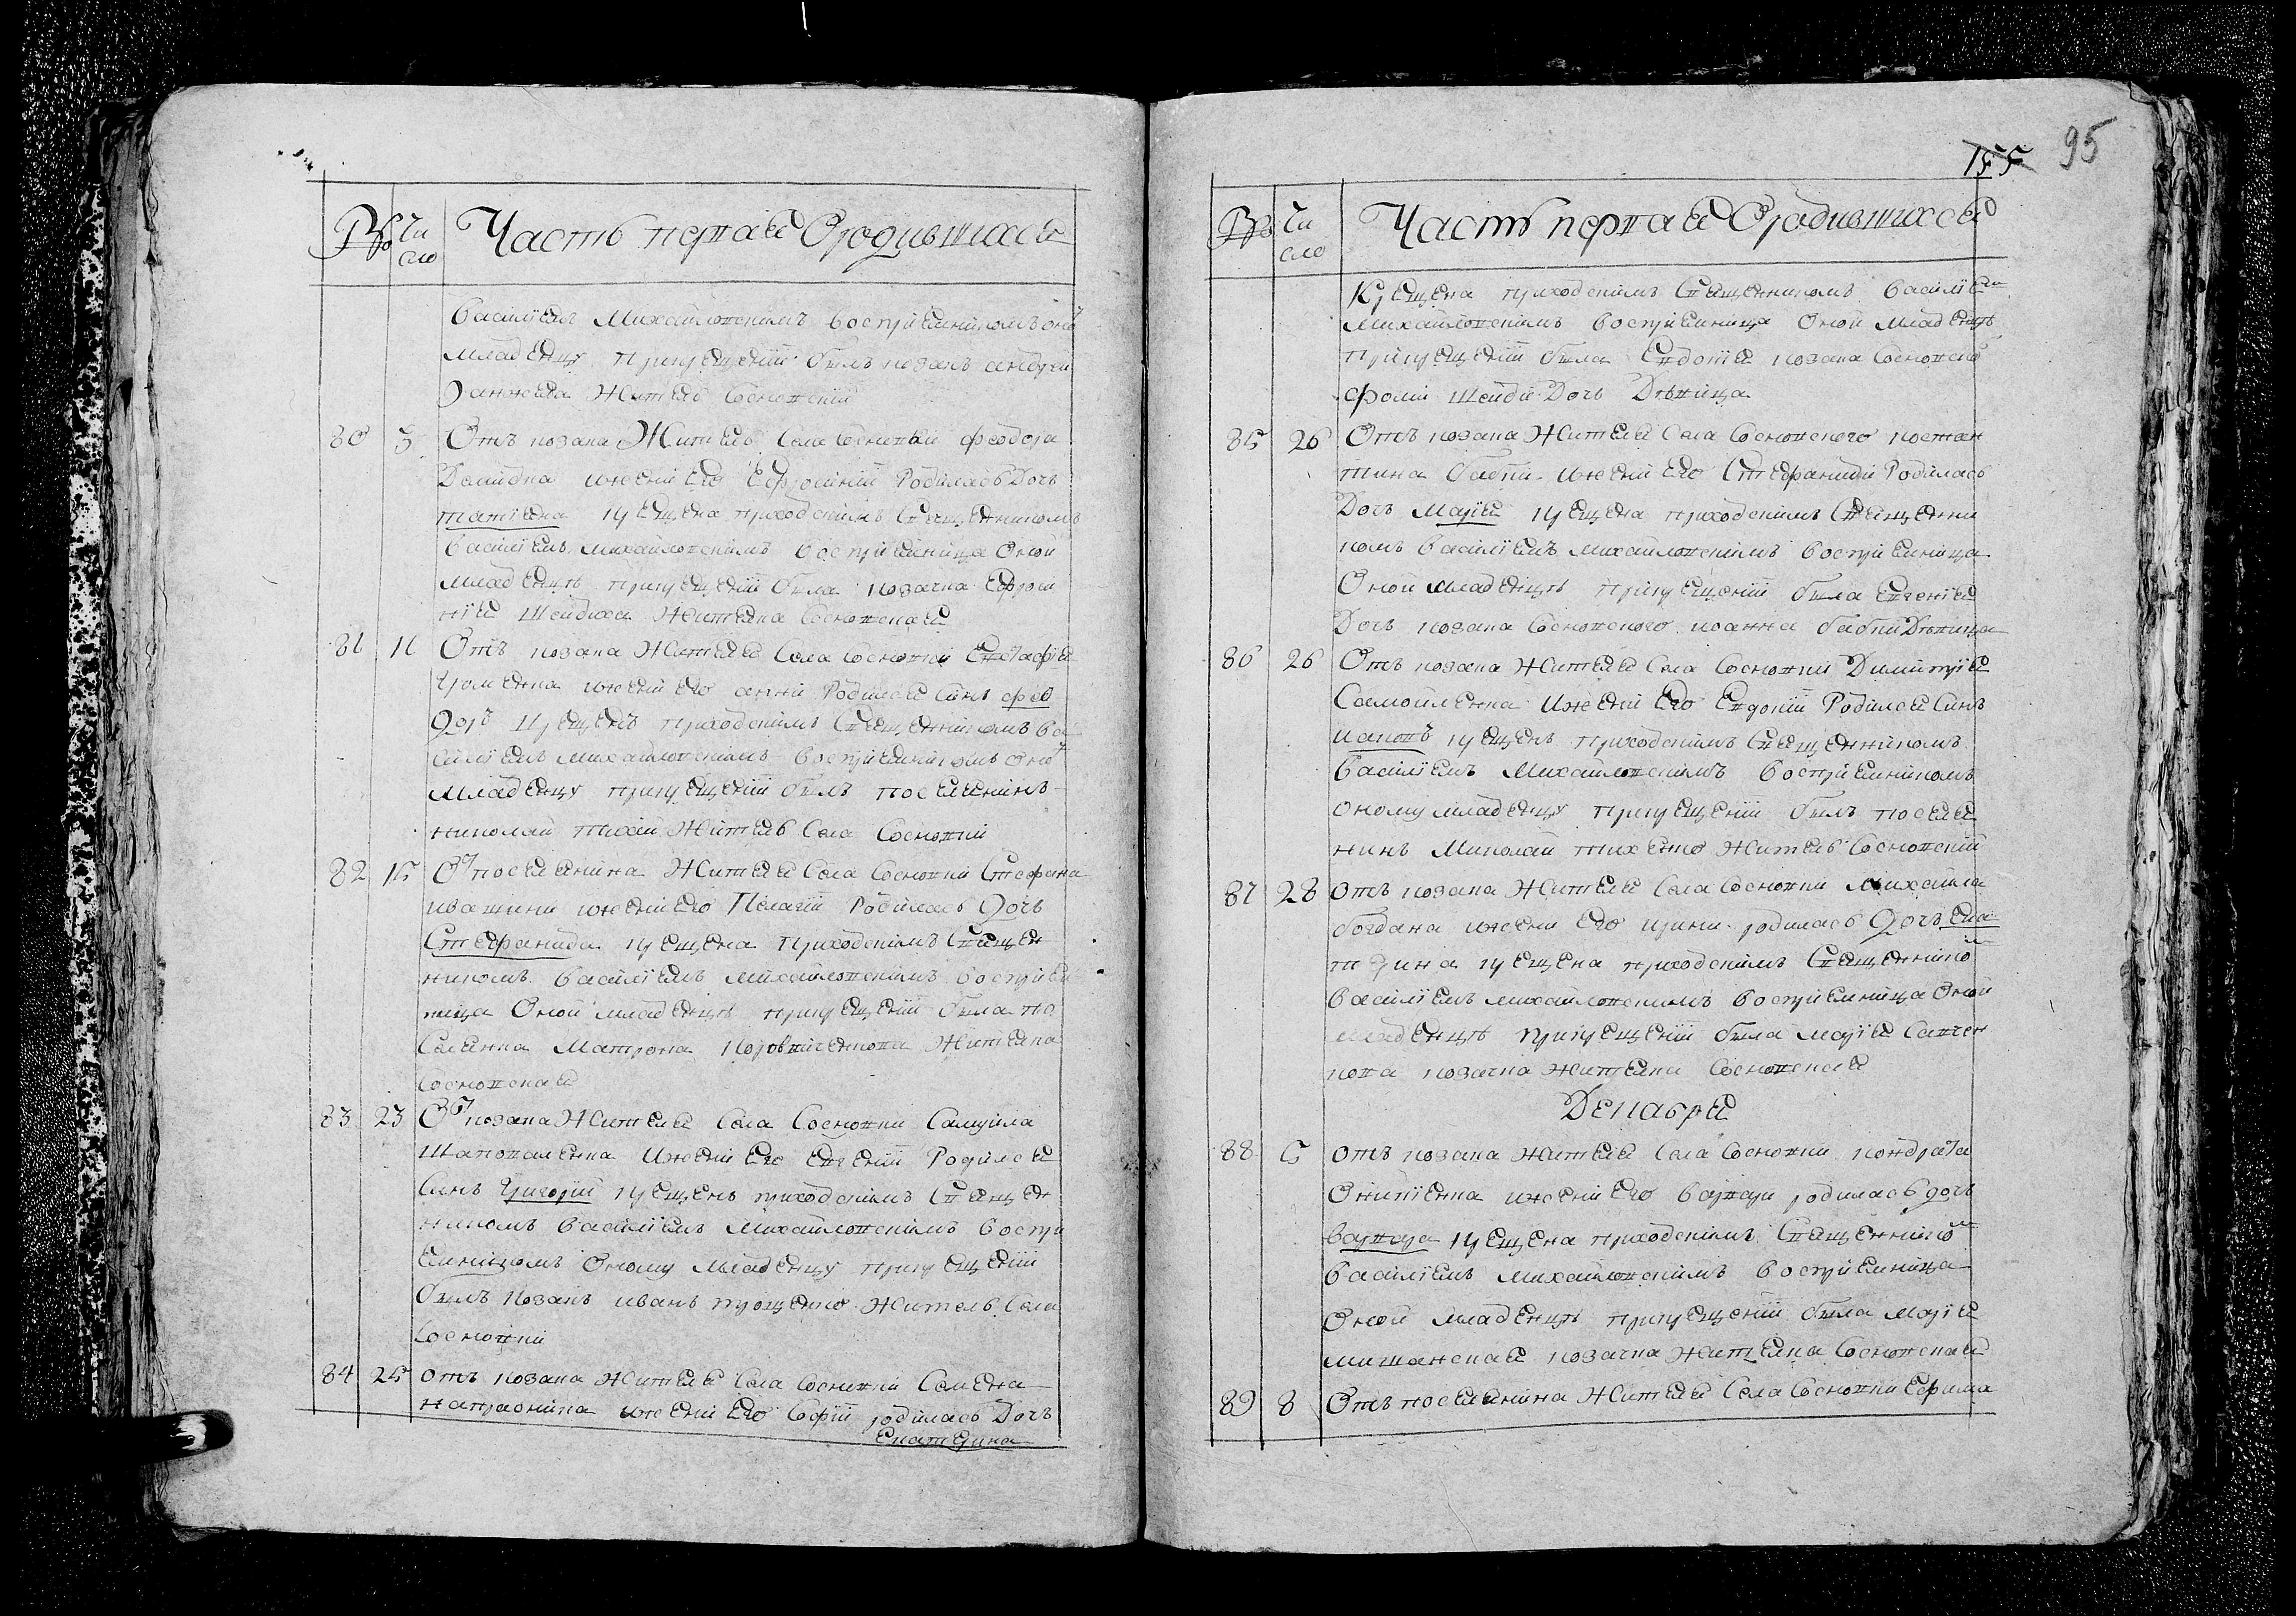 155 95
№ Чи сло Часть первая Ородившихся
Василїемъ Михайловскимъ восприемникомъ оно
младенцу прикрещенїи былъ козакъ андрей
житель Сосновский
80 5 Отъ козака Жителя Села Сосновки феодора
Демидка ижени Его Ефросинїи Родилась Дочь
татїена крещена приходскимъ Священникомъ
Василїемъ михайловскимъ восприемница Оной
младенцѣ прикрещенїи была козачка Ефроси
нїя Шейдиха Жителка Сосновская
81 11 Отъ козака Жителя Села Сосновки Евстафїя
ижени его анни Родился синъ фео
доръ крещенъ приходскимъ Священникомъ Ва
силїемъ михайловскимъ восприемникомъ оно
младенцу прикрещенїи былъ поселянинъ
николай тихий Житель Села Сосновки
82 15 Отъ поселянина Жителя Села Сосновки Стефана
ивашини ижени Его Пелагїи Родилась Дочь
Стефанида крещена приходскимъ Священ
никомъ Василїемъ михайловскимъ восприем
ница Оной младенцѣ прикрещенїи была по
селянка Матрона Жителка
Сосновская
83 23 Отъ козака Жителя Села Сосновки Самуила
Шаповаленка ижени Его Евгенїи Родился
Синъ Григорїй крещенъ приходскимъ Священ
никомъ Василїемъ Михайловскимъ воспри
емникомъ Оному младенцу прикрещенїи
былъ козакъ иванъ троценко Житель Села
Сосновки
84 25 отъ козака Жителя Села Сосновки Семена
ижени Его Софїи родилась Дочь
Екатерина
№ Чи сло Часть первая Ородившихся
Крещена приходскимъ Священникомъ Василїем
михайловскимъ восприемница Оной младенцѣ
прикрещенїи была Евдокїя козака Сосновского
фоми Шейди Дочь Дѣвица
85 26 Отъ козака Жителя Села Сосновского костан
тина бабки ижени Его Стефаниди Родилась
Дочь Марїя крещена приходскимъ Священни
комъ Василїемъ михайловскимъ восприемница
Оной младенцѣ прикрещенїи была Евгенїя
Дочь козака Сосновского иоанна бабки Дѣвица
86 26 Отъ козака Жителя Села Сосновки Димитрїя
Самойленка ижени Его Евдокїи Родился синъ
иаковъ крещенъ приходскимъ Священникомъ
Василїемъ Михайловскимъ восприемникомъ
оному младенцу прикрещенїи былъ поселя
нинъ Миколай тихенко Житель Сосновский
87 28 отъ козака Жителя Села Сосновки Михайла
богдана ижени Его ирини родилась Дочь Ека
терина крещена приходскимъ Священником
Василїемъ михайловскимъ восприемница Оной
младенцѣ прикрещенїи была Марїя Савчен
кова козачка Жителка Сосновская
Декабря
88 5 отъ козака Жителя Села Сосновки кондрата
ижени Его варвари родилась дочь
варвара крещена приходскимъ Священником
Василїемъ михайловскимъ восприемница
Оной младенцѣ прикрещенїи была Марїя
мишанская козачка Жителка Сосновская
89 8 Отъ поселянина Жителя Села Сосновки Ефима